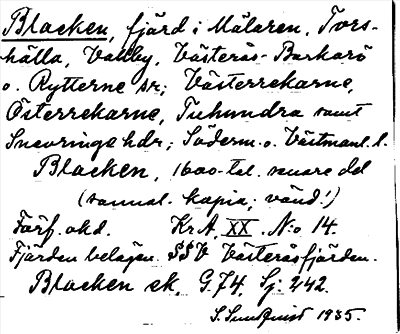 Blacken, fjärd i Mälaren, Tors-
hälla, Vallby, Västerås-Barkarö
o. Rytterne sr; Västerrekarne,
Österrekarne, Tuhundra samt
Snevringe hdr; Söderm. o. Västmanl. l.
Blacken, 1600-tal. senare del
(samal. kopia; vänd!)
Förf. okd. Kr A. XX. No 14.
Fjärden belägen SSV Västeråsfjärden.
Blacken ek. G.74, Sj: 242.
S. Sundquist 1935.